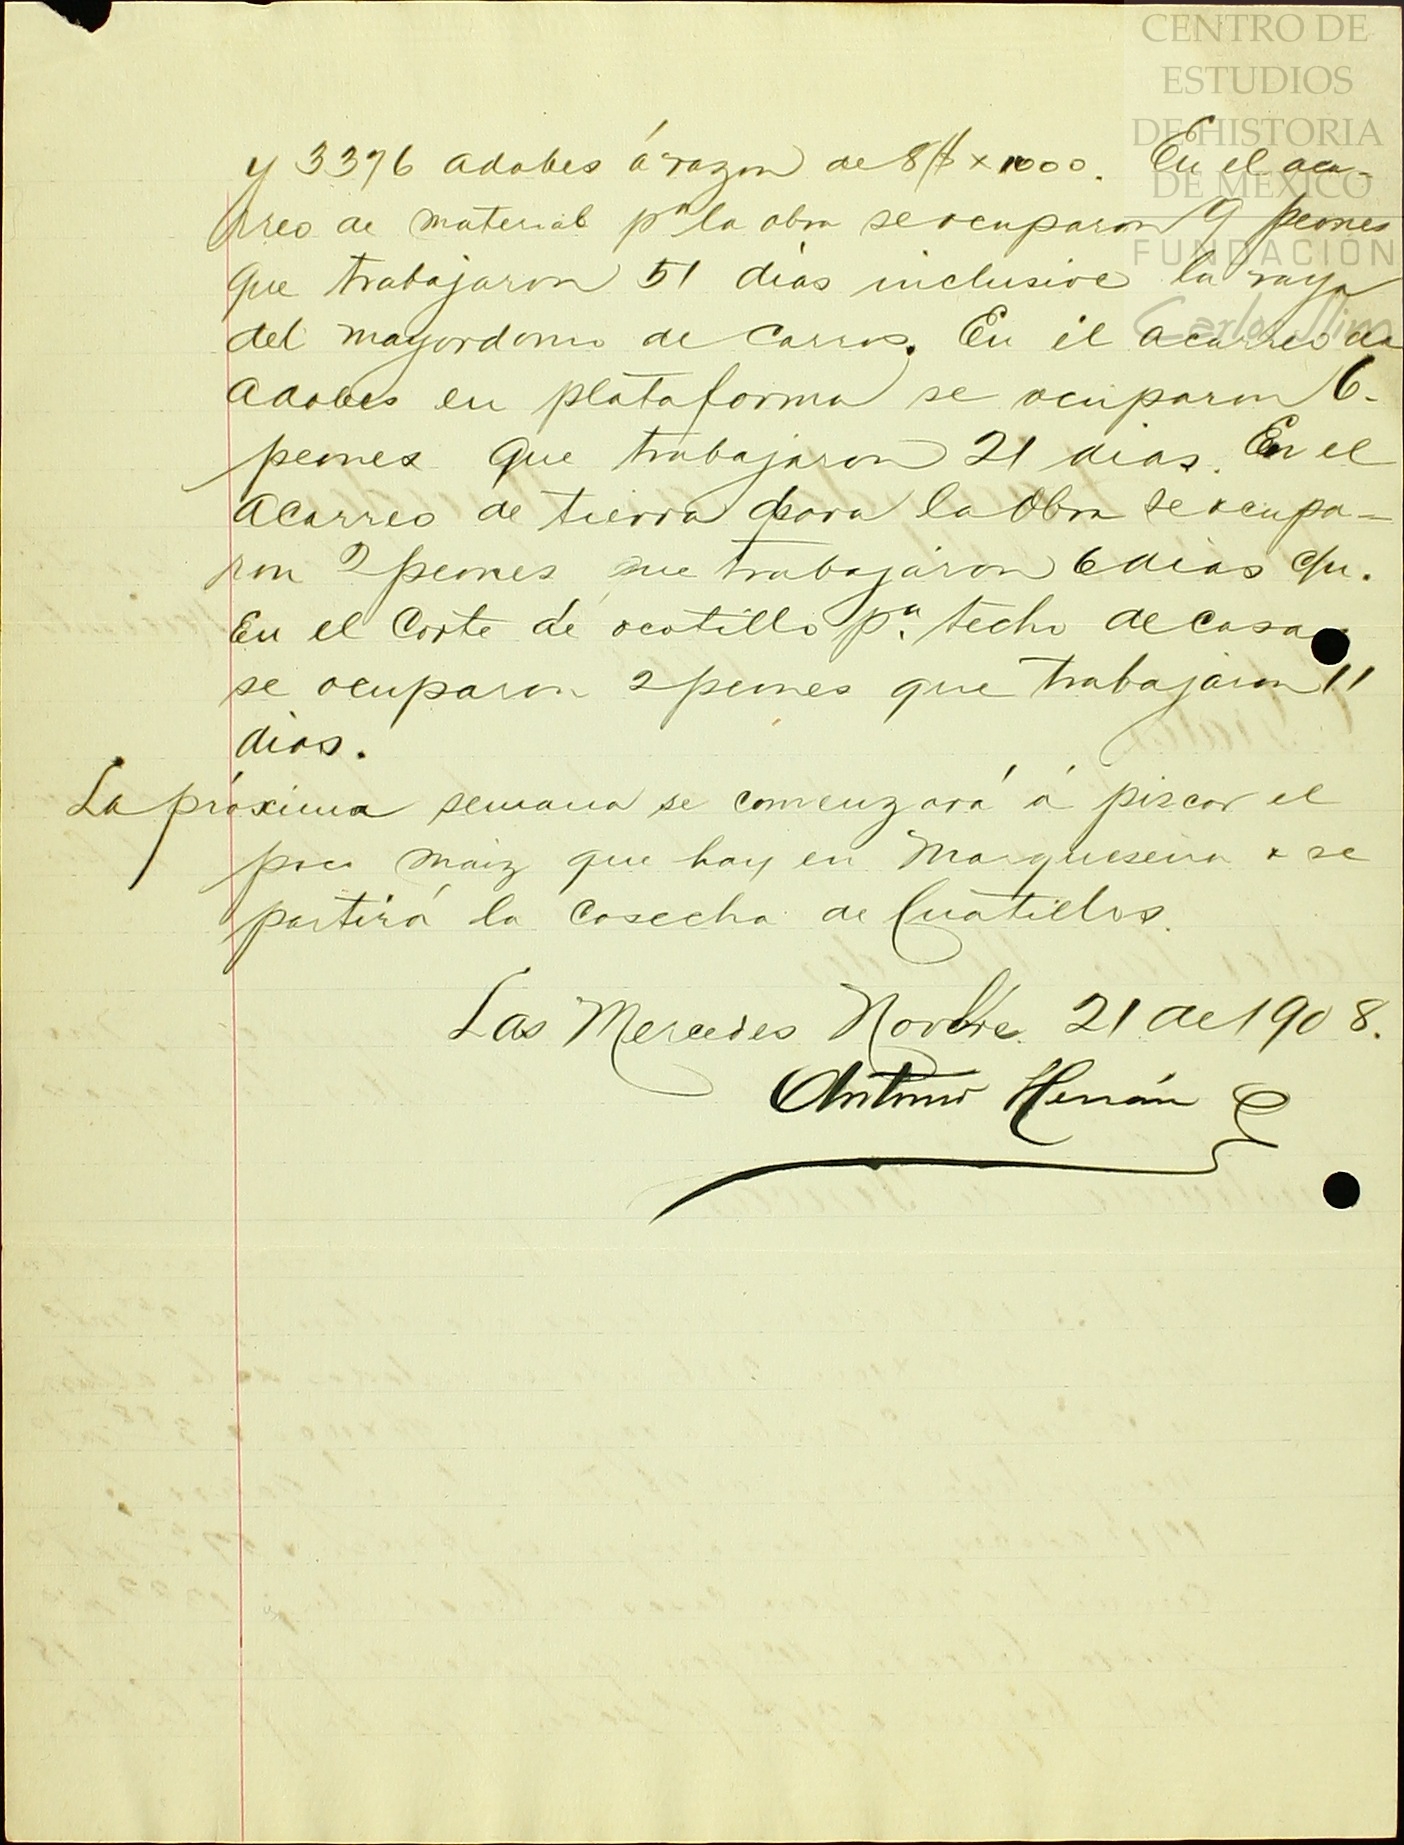 CENTRO DE
ESTUDIOS
DE HISTORIA
DE MÉXICO
FUNDACIÓN
Carlos Slim
y 3376 adobes á razon de 8$ x 1000. En el aca-
rreo de material pª la obra se ocuparon 9 peones
que trabajaron 51 dias inclusive la raya
del mayordomo de carros. En el acarreo de
adobes en plataforma se ocuparon 6-
peones que trabajaron 21 dias. En el
acarreo de tierra para la obra se ocupa-
ron 2 peones que trabajaron 6 dias c/u.
En el corte de ocotillo pª. techo de casa
se ocuparon 2 peones que trabajaron 11
dias.
La próxima semana se comenzará á piscar el
poco maiz que hay en Marqueseña & se
partirá la cosecha de Cuatillos.
Las Mercedes Novbre. 21 de 1908.
Antonio Herrán